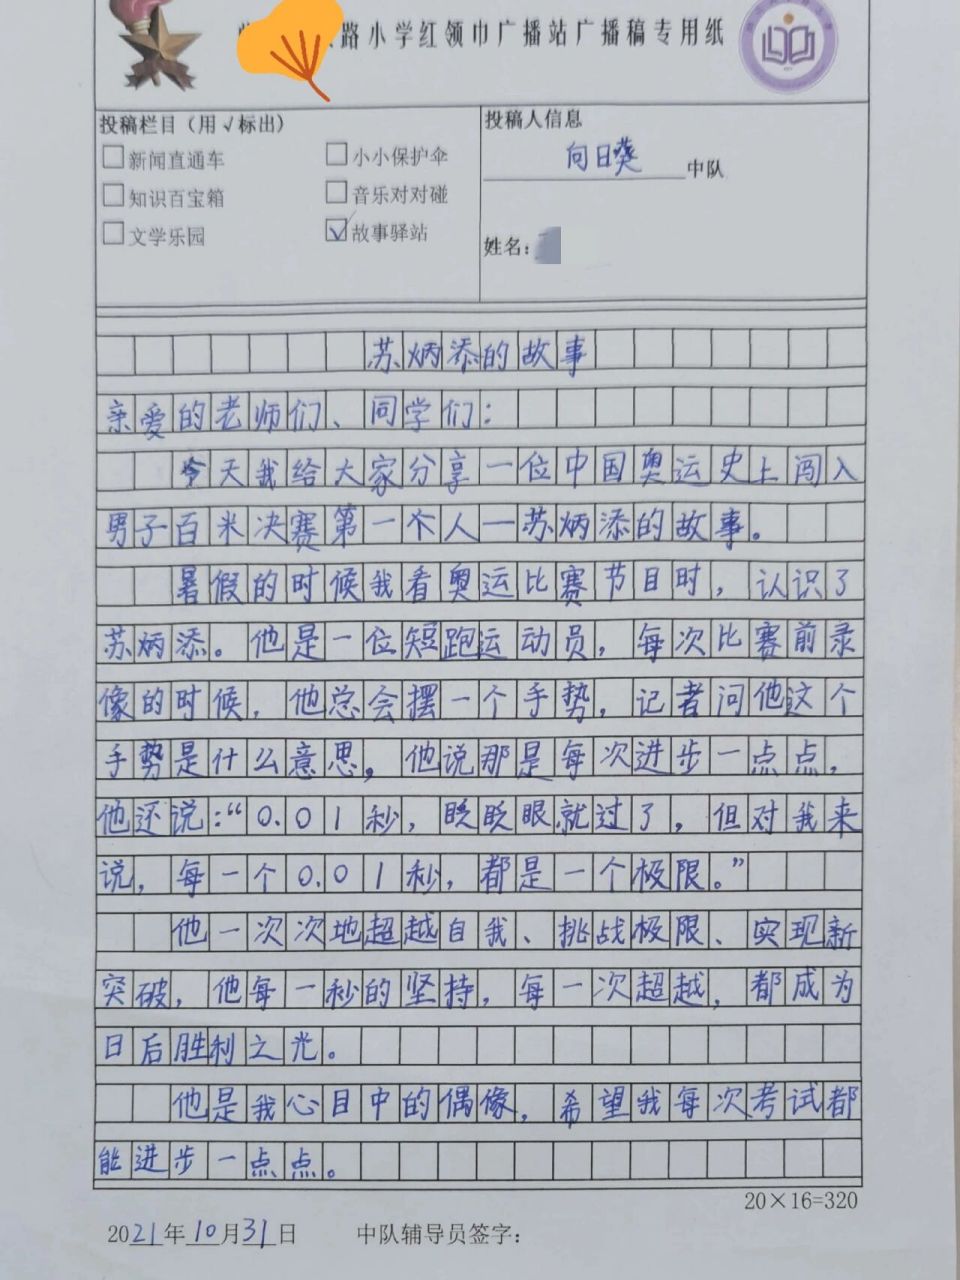 路小学红领巾广播站广播稿专用纸
投稿栏目（用√标出）
投稿人信息
□新闻直通车 □小小保护伞
向日葵中队
□知识百宝箱 □音乐对对碰
□文学乐园 ☑故事驿站
姓名：
苏炳添的故事
亲爱的老师们、同学们：
今天我给大家分享一位中国奥运史上闯入
男子百米决赛第一个人—苏炳添的故事。
暑假的时候我看奥运比赛节目时，认识了
苏炳添。他是一位短跑运动员，每次比赛前录
像的时候，他总会摆一个手势，记者问他这个
手势是什么意思，他说那是每次进步一点点，
他还说：“0.01秒，眨眨眼就过了，但对我来
说，每一个0.01秒，都是一个极限。”
他一次次地超越自我、挑战极限、实现新
突破，他每一秒的坚持，每一次超越，都成为
日后胜利之光。
他是我心目中的偶像，希望我每次考试都
能进步一点点。
20×16=320
2021年10月31日 中队辅导员签字：